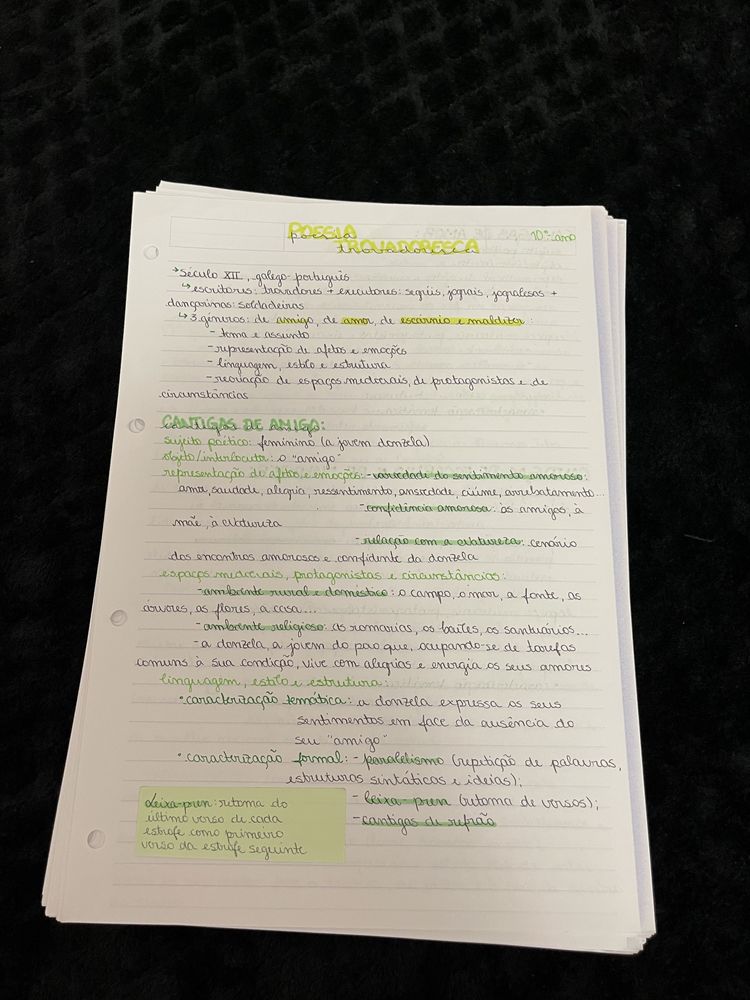 POESIA
poesia
TROVADORESCA
trovadoresca
10º ano
→ século XII, galego-português
↳ escritores: trovadores + executores: segréis, jograis, jogralesas +
dançarinas: soldadeiras
↳ 3 géneros: de amigo, de amor, de escárnio e maldizer:
- tema e assunto
- representação de afetos e emoções
- linguagem, estilo e estrutura
- recriação de espaços medievais, de protagonistas e de
circunstâncias
CANTIGAS DE AMIGO:
sujeito poético: feminino (a jovem donzela)
objeto/interlocutor: o "amigo"
representação de afetos e emoções: - variedade do sentimento amoroso:
amor, saudade, alegria, ressentimento, ansiedade, ciúme, arrebatamento...
- confidência amorosa: às amigas, à
mãe, à natureza
- relação com a natureza: cenário
dos encontros amorosos e confidente da donzela
espaços medievais, protagonistas e circunstâncias:
- ambiente rural e doméstico: o campo, o mar, a fonte, as
árvores, as flores, a casa...
- ambiente religioso: as romarias, os bailes, os santuários...
- a donzela, a jovem do povo que, ocupando-se de tarefas
comuns à sua condição, vive com alegrias e energia os seus amores
linguagem, estilo e estrutura:
• caracterização temática: a donzela expressa os seus
sentimentos em face da ausência do
seu "amigo"
• caracterização formal: - paralelismo (repetição de palavras,
estruturas sintáticas e ideias);
- leixa-pren (retoma de versos);
- cantigas de refrão
leixa-pren: retoma do
último verso de cada
estrofe como primeiro
verso da estrofe seguinte